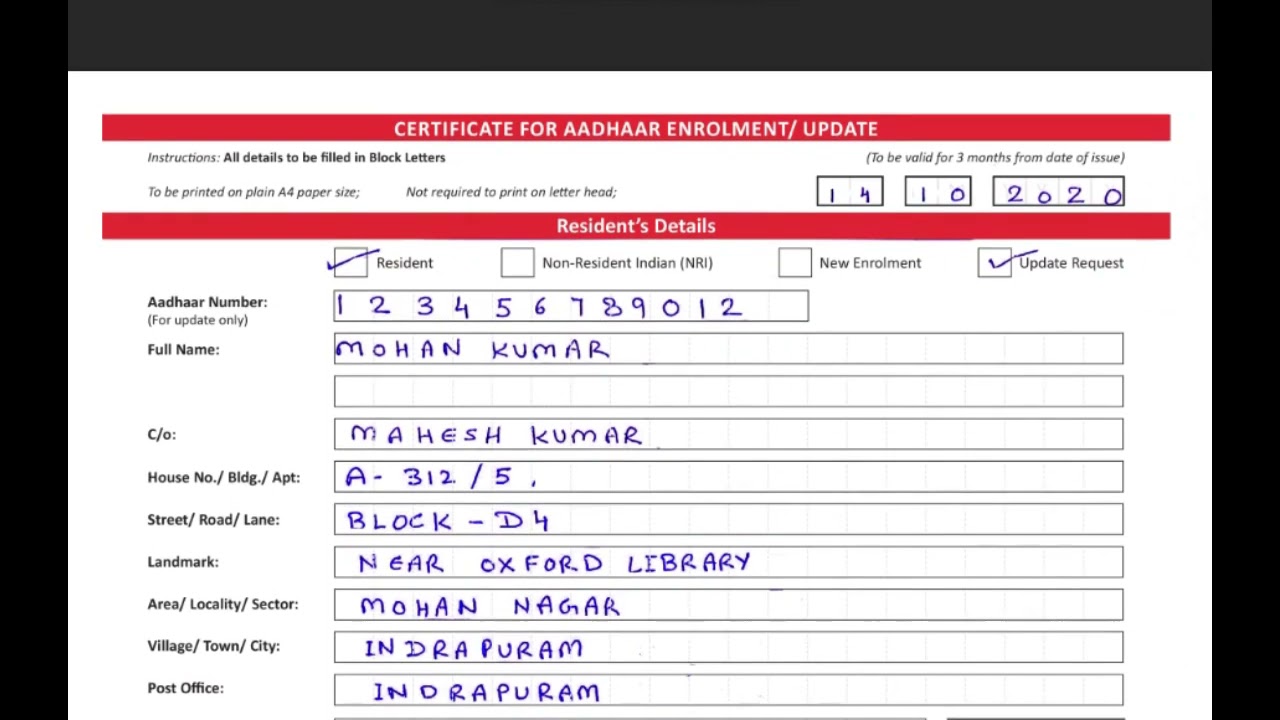 CERTIFICATE FOR AADHAAR ENROLMENT/ UPDATE
Instructions: All details to be filled in Block Letters (To be valid for 3 months from date of issue)
To be printed on plain A4 paper size; Not required to print on letter head; 14 10 2020
Resident's Details
Resident Non-Resident Indian (NRI) New Enrolment Update Request
Aadhaar Number: 123456789012
(For update only)
Full Name: MOHAN KUMAR
C/o: MAHESH KUMAR
House No./ Bldg./ Apt: A- 312 / 5 ,
Street/ Road/ Lane: BLOCK - D4
Landmark: NEAR OXFORD LIBRARY
Area/ Locality/ Sector: MOHAN NAGAR
Village/ Town/ City: INDRAPURAM
Post Office: INDRAPURAM